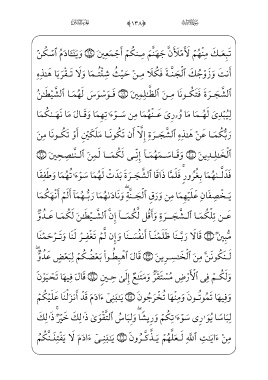 تَبِعَكَ مِنْهُمْ لَأَمْلَأَنَّ جَهَنَّمَ مِنكُمْ أَجْمَعِينَ ۝ وَيَٰٓـَٔادَمُ ٱسْكُنْ
أَنتَ وَزَوْجُكَ ٱلْجَنَّةَ فَكُلَا مِنْ حَيْثُ شِئْتُمَا وَلَا تَقْرَبَا هَٰذِهِ
ٱلشَّجَرَةَ فَتَكُونَا مِنَ ٱلظَّٰلِمِينَ ۝ فَوَسْوَسَ لَهُمَا ٱلشَّيْطَٰنُ
لِيُبْدِىَ لَهُمَا مَا وُۥرِىَ عَنْهُمَا مِن سَوْءَٰتِهِمَا وَقَالَ مَا نَهَىٰكُمَا
رَبُّكُمَا عَنْ هَٰذِهِ ٱلشَّجَرَةِ إِلَّآ أَن تَكُونَا مَلَكَيْنِ أَوْ تَكُونَا مِنَ
ٱلْخَٰلِدِينَ ۝ وَقَاسَمَهُمَآ إِنِّى لَكُمَا لَمِنَ ٱلنَّٰصِحِينَ ۝
فَدَلَّىٰهُمَا بِغُرُورٍ فَلَمَّا ذَاقَا ٱلشَّجَرَةَ بَدَتْ لَهُمَا سَوْءَٰتُهُمَا وَطَفِقَا
يَخْصِفَانِ عَلَيْهِمَا مِن وَرَقِ ٱلْجَنَّةِ وَنَادَىٰهُمَا رَبُّهُمَآ أَلَمْ أَنْهَكُمَا
عَن تِلْكُمَا ٱلشَّجَرَةِ وَأَقُل لَّكُمَآ إِنَّ ٱلشَّيْطَٰنَ لَكُمَا عَدُوٌّ
مُّبِينٌ ۝ قَالَا رَبَّنَا ظَلَمْنَآ أَنفُسَنَا وَإِن لَّمْ تَغْفِرْ لَنَا وَتَرْحَمْنَا
لَنَكُونَنَّ مِنَ ٱلْخَٰسِرِينَ ۝ قَالَ ٱهْبِطُوا۟ بَعْضُكُمْ لِبَعْضٍ عَدُوٌّ
وَلَكُمْ فِى ٱلْأَرْضِ مُسْتَقَرٌّ وَمَتَٰعٌ إِلَىٰ حِينٍ ۝ قَالَ فِيهَا تَحْيَوْنَ
وَفِيهَا تَمُوتُونَ وَمِنْهَا تُخْرَجُونَ ۝ يَٰبَنِىٓ ءَادَمَ قَدْ أَنزَلْنَا عَلَيْكُمْ
لِبَاسًا يُوَٰرِى سَوْءَٰتِكُمْ وَرِيشًا وَلِبَاسُ ٱلتَّقْوَىٰ ذَٰلِكَ خَيْرٌ ذَٰلِكَ
مِنْ ءَايَٰتِ ٱللَّهِ لَعَلَّهُمْ يَذَّكَّرُونَ ۝ يَٰبَنِىٓ ءَادَمَ لَا يَفْتِنَنَّكُمُ